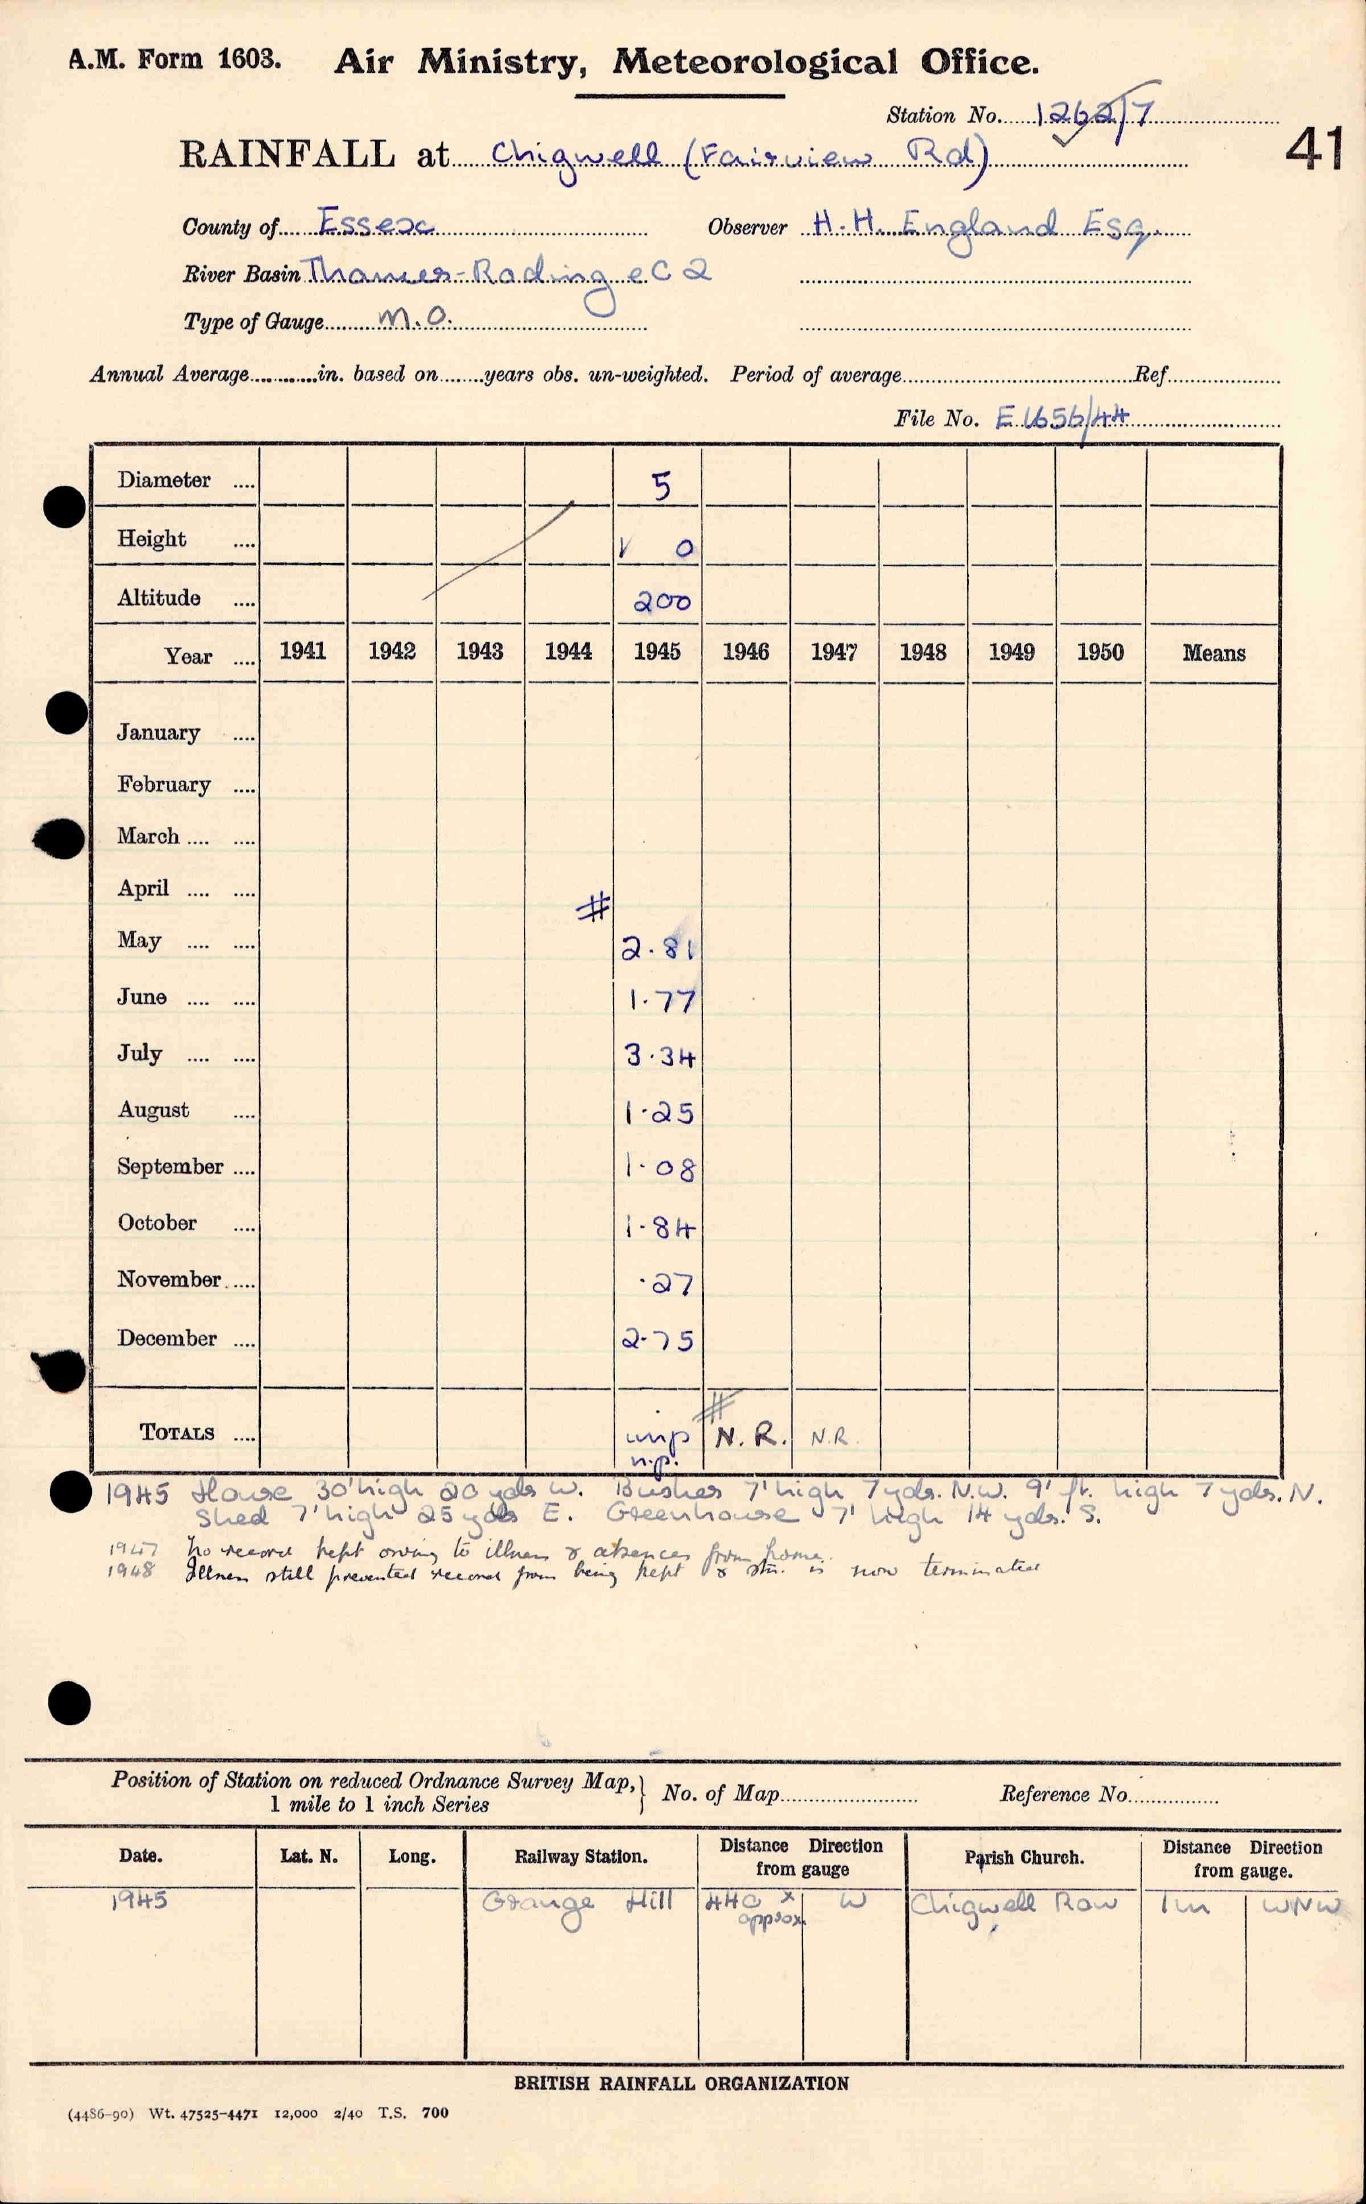 A.M. Form 1603. Air Ministry, Meteorological Office.
Station No. 1262/7
41
RAINFALL at Chigwell (Fairview Rd)
County of Essex Observer H.H. England Esq.
River Basin Thames-Roding eC2
Type of Gauge M.O.
Annual Average............in. based on........years obs. un-weighted. Period of average........ Ref........
File No. E 1656/44
Diameter .... 5
Height .... 1 0
Altitude .... 200
Year .... 1941 1942 1943 1944 1945 1946 1947 1948 1949 1950 Means
January ....
February ....
March .... ....
April .... ....
#
May .... .... 2.81
June .... .... 1.77
July .... .... 3.34
August .... 1.25
September .... 1.08
October .... 1.84
November .... .27
December .... 2.75
#
TOTALS .... imp N.R. N.R.
n.p.
1945 House 30' high 20 yds W. Bushes 7' high 7 yds. N.W. 9' ft. high 7 yds. N.
Shed 7' high 25 yds E. Greenhouse 7' high 14 yds. S.
1947 No record kept owing to illness & absences from home.
1948 Illness still prevented record from being kept & stn. is now terminated
Position of Station on reduced Ordnance Survey Map, } No. of Map........ Reference No........
1 mile to 1 inch Series
Date. Lat. N. Long. Railway Station. Distance Direction from gauge Parish Church. Distance Direction from gauge.
1945 Grange Hill 440 x W Chigwell Row 1m WNW
approx.
BRITISH RAINFALL ORGANIZATION
(4486-90) Wt. 47525-4471 12,000 2/40 T.S. 700